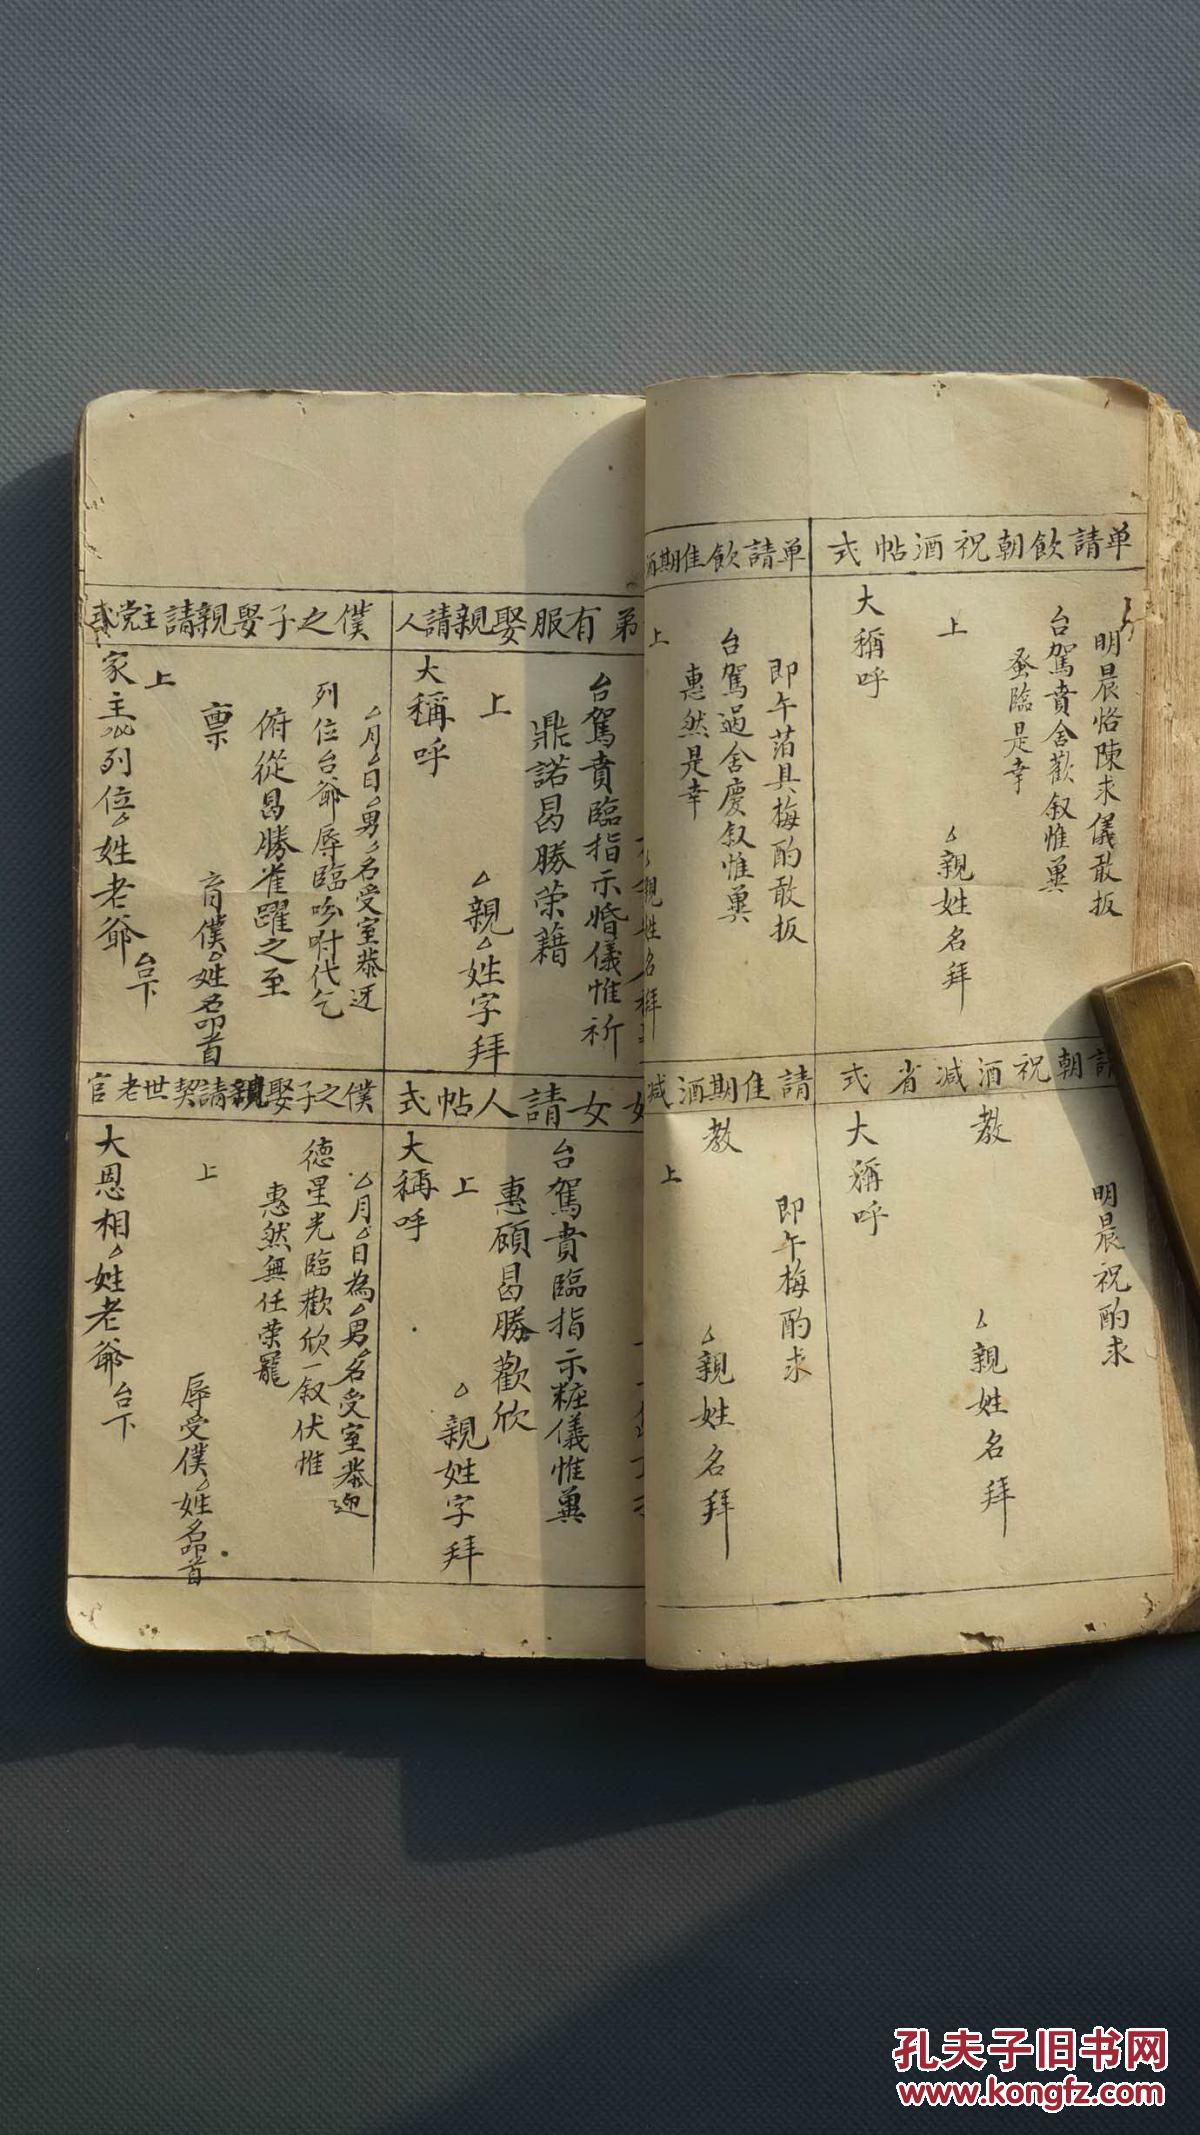 单請飲朝祝酒帖式
明晨恪陳求儀敢扳
台駕賁舍歡叙惟冀
蚤臨是幸
上
△親姓名拜
大稱呼
单請飲佳期酒
即午萡具梅酌敢扳
台駕過舍慶叙惟冀
惠然是幸
上
請朝祝酒减省式
明晨祝酌求
教
△親姓名拜
大稱呼
請佳期酒减
即午梅酌求
教
△親姓名拜
上
弟有服娶親請人
△親姓名
台駕賁臨指示婚儀惟祈
鼎諾曷勝荣藉
上
△親△姓字拜
大稱呼
僕之子娶親請主党式
△月△日男△名受室恭迓
列位台爺辱臨吩咐代乞
俯從曷勝雀躍之至
禀
育僕△姓名叩首
上
家主△列位△姓老爺台下
女請人帖式
台駕賁臨指示粧儀惟冀
惠顧曷勝歡欣
上
△親姓字拜
大稱呼
僕之子娶親請契世老官
△月△日為△男△名受室恭迎
德星光臨歡欣一叙伏惟
惠然無任荣寵
上
辱受僕△姓名叩首
大恩相△姓老爺台下
孔夫子旧书网
www.kongfz.com